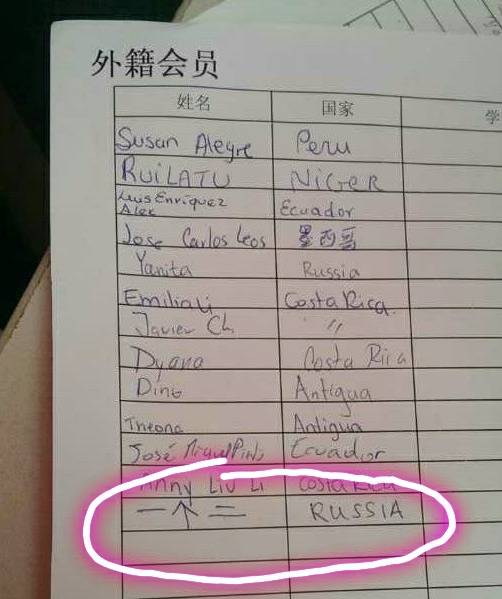 外籍会员
姓名 国家 学
Susan Alegre Peru
RUiLATU NiGeR
Luis Enriquez Ecuador
Alex
Jose Carlos Leos 墨西哥
Yanita Russia
Emilia Li Costa Rica.
Javier Ch 〃
Dyana Costa Rica
Dino Antigua
Theona Antigua
José Miguel Pinto Ecuador
Anny Liu Li Costa Rica
一个二 RUSSIA